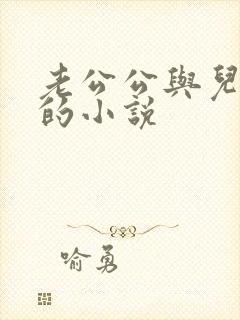 老公公與兒
的小說
喻勇